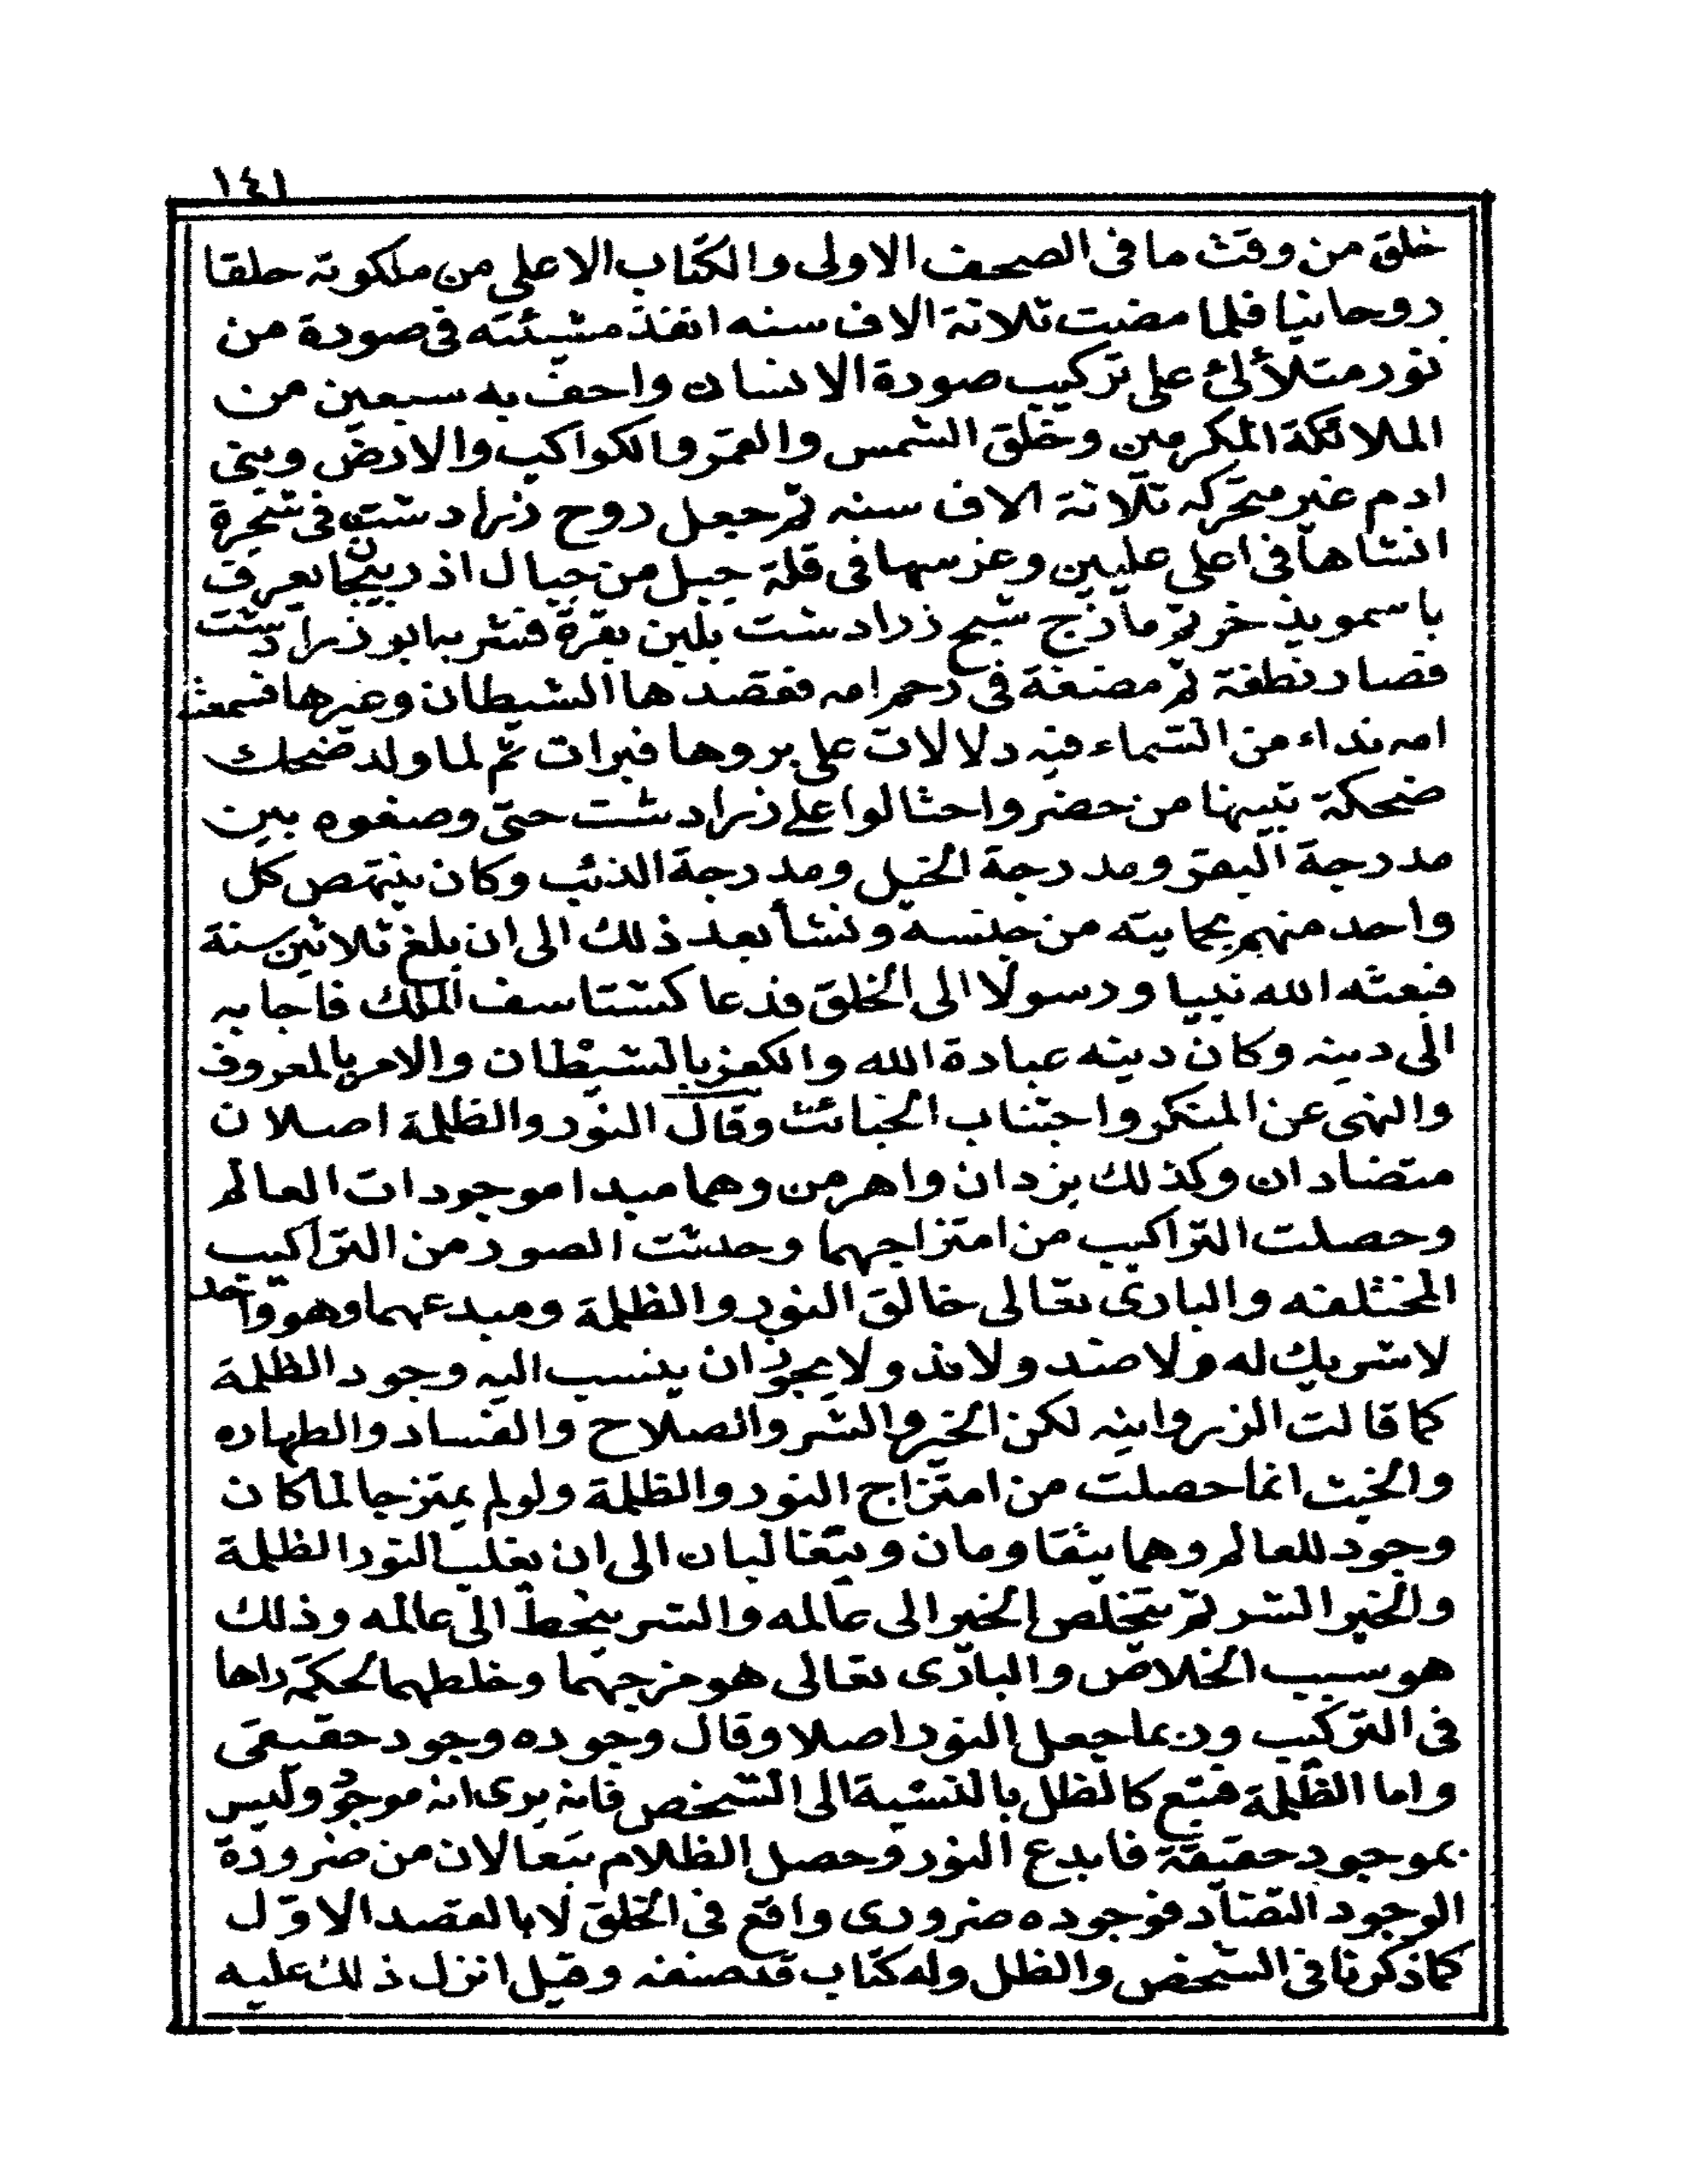 ١٤١
خلق من وقت ما فى الصحف الاولى والكتاب الاعلى من ملكوته خلقا
روحانيا فلما مضت ثلاثة الاف سنه انفذ مشيئته فى صورة من
نور متلألئ على تركيب صورة الانسان واحف به سبعين من
الملائكة المكرمين وخلق الشمس والقمر والكواكب والارض وبنى
ادم غير متحركه ثلاثة الاف سنه ثم جعل روح زرادشت فى شجرة
انشاها فى اعلى عليين وغرسها فى قلة جبل من جبال اذربيجان يعرف
باسمويذ خر ثم مازج شبح زرادشت بلبن بقرة فشربه ابو زرادشت
فصار نطفة ثم مضغة فى رحم امه فقصدها الشيطان وغيرها فسمعت
امه نداء من السماء فيه دلالات على بروها فبرات ثم لما ولد ضحك
ضحكة تبينها من حضر واحتالوا على زرادشت حتى وضعوه بين
مدرجة البقر ومدرجة الخيل ومدرجة الذئب وكان ينتهض كل
واحد منهم بحمايته من جنسه ونشأ بعد ذلك الى ان بلغ ثلاثين سنة
فبعثه الله نبيا ورسولا الى الخلق فدعا كشتاسف الملك فاجابه
الى دينه وكان دينه عبادة الله والكفر بالشيطان والامر بالمعروف
والنهى عن المنكر واجتناب الخبائث وقال النور والظلمة اصلان
متضادان وكذلك يزدان واهرمن وهما مبدا موجودات العالم
وحصلت التراكيب من امتزاجهما وحدثت الصور من التراكيب
المختلفه والبارى تعالى خالق النور والظلمة ومبدعهما وهو واحد
لا شريك له ولا ضد ولا ند ولا يجوز ان ينسب اليه وجود الظلمة
كما قالت الزروانيه لكن الخير والشر والصلاح والفساد والطهاره
والخبث انما حصلت من امتزاج النور والظلمة ولو لم يمتزجا لما كان
وجود للعالم وهما يتقاومان ويتغالبان الى ان يغلب النور الظلمة
والخير الشر ثم يتخلص الخير الى عالمه والشر ينحط الى عالمه وذلك
هو سبب الخلاص والبارى تعالى هو مزجهما وخلطهما لحكمة راها
فى التركيب وربما جعل النور اصلا وقال وجوده وجود حقيقى
واما الظلمة فتبع كالظل بالنسبة الى الشخص فانه يرى انه موجود وليس
بموجود حقيقة فابدع النور وحصل الظلام تبعا لان من ضرورة
الوجود التضاد فوجوده ضرورى واقع فى الخلق لا بالقصد الاول
كما ذكرنا فى الشخص والظل وله كتاب قد صنفه وقيل انزل ذلك عليه